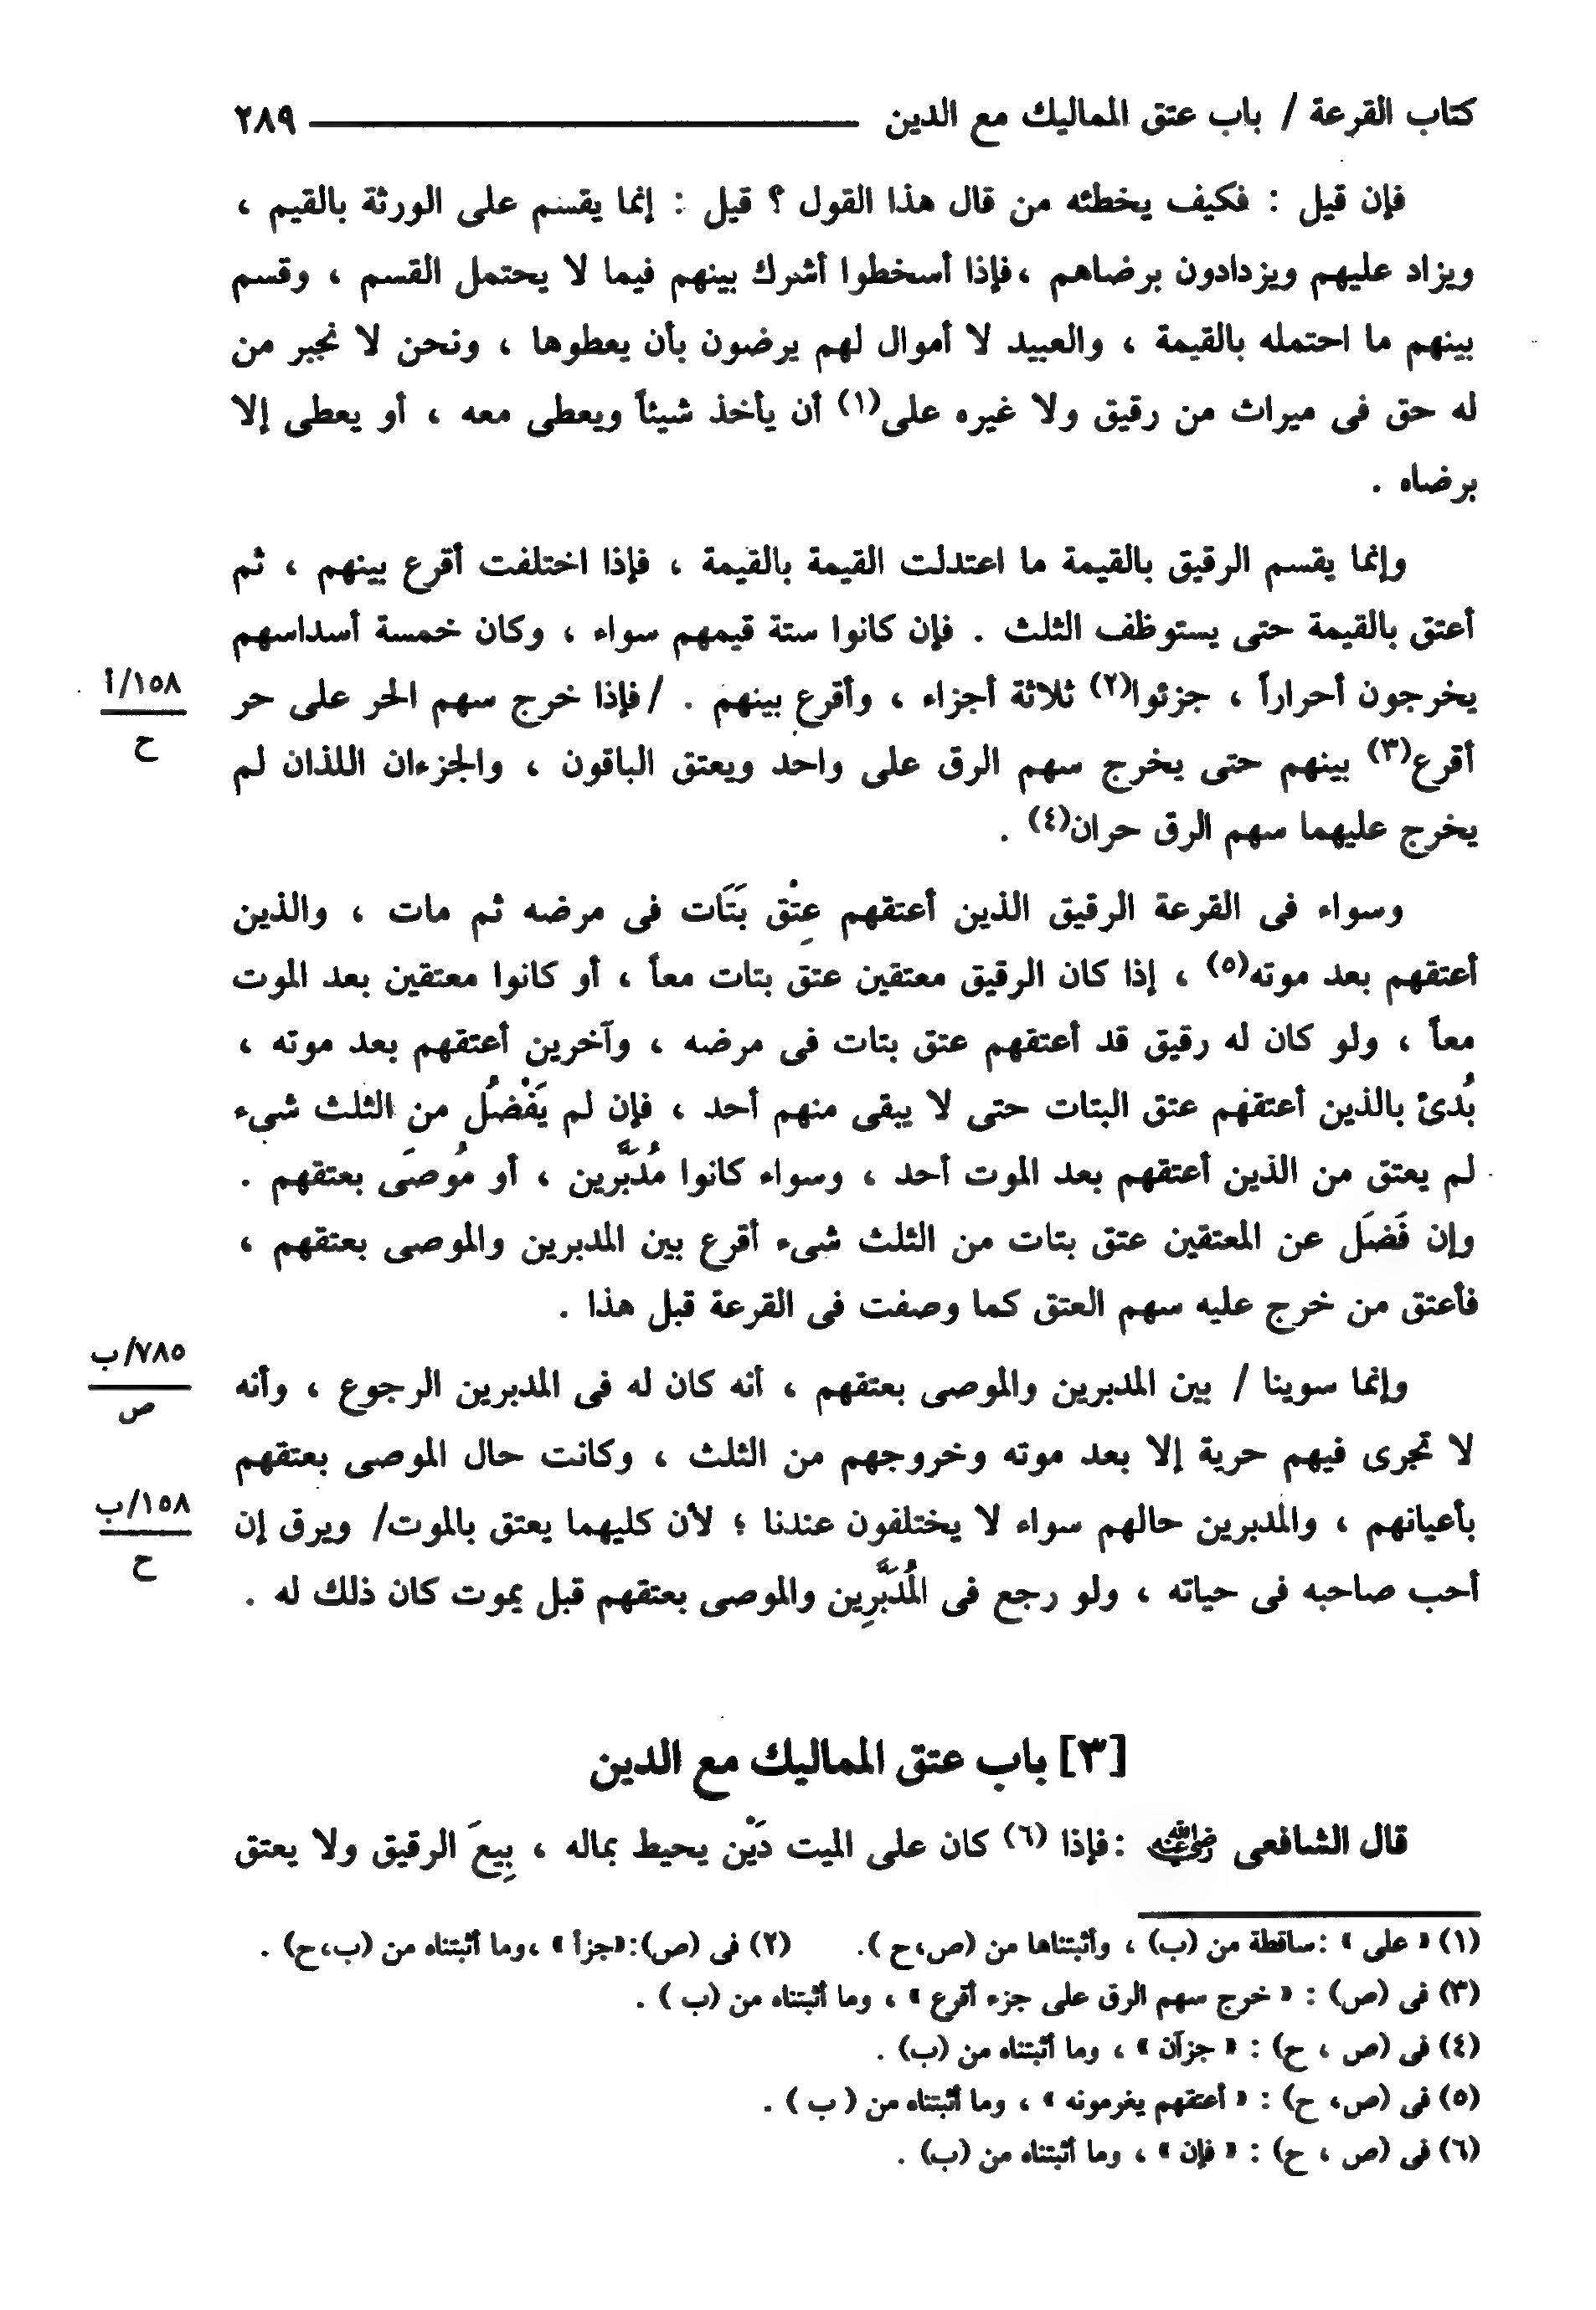 كتاب القرعة / باب عتق المماليك مع الدين ـــــــ ٢٨٩
فإن قيل : فكيف يخطئه من قال هذا القول ؟ قيل : إنما يقسم على الورثة بالقيم ،
ويزاد عليهم ويزدادون برضاهم ،فإذا أسخطوا أشرك بينهم فيما لا يحتمل القسم ، وقسم
بينهم ما احتمله بالقيمة ، والعبيد لا أموال لهم يرضون بأن يعطوها ، ونحن لا نجبر من
له حق فى ميراث من رقيق ولا غيره على(١) أن يأخذ شيئاً ويعطى معه ، أو يعطى إلا
برضاه .
وإنما يقسم الرقيق بالقيمة ما اعتدلت القيمة بالقيمة ، فإذا اختلفت أقرع بينهم ، ثم
أعتق بالقيمة حتى يستوظف الثلث . فإن كانوا ستة قيمهم سواء ، وكان خمسة أسداسهم
يخرجون أحراراً ، جزئوا(٢) ثلاثة أجزاء ، وأقرع بينهم . /فإذا خرج سهم الحر على حر
١٥٨/أ
ح
أقرع(٣) بينهم حتى يخرج سهم الرق على واحد ويعتق الباقون ، والجزءان اللذان لم
يخرج عليهما سهم الرق حران(٤) .
وسواء فى القرعة الرقيق الذين أعتقهم عِتْق بَتَات فى مرضه ثم مات ، والذين
أعتقهم بعد موته(٥) ، إذا كان الرقيق معتقين عتق بتات معاً ، أو كانوا معتقين بعد الموت
معاً ، ولو كان له رقيق قد أعتقهم عتق بتات فى مرضه ، وآخرين أعتقهم بعد موته ،
بُدئ بالذين أعتقهم عتق البتات حتى لا يبقى منهم أحد ، فإن لم يَفْضُل من الثلث شىء
لم يعتق من الذين أعتقهم بعد الموت أحد ، وسواء كانوا مُدَبَّرين ، أو مُوصَى بعتقهم .
وإن فَضَل عن المعتقين عتق بتات من الثلث شىء أقرع بين المدبرين والموصى بعتقهم ،
فأعتق من خرج عليه سهم العتق كما وصفت فى القرعة قبل هذا .
وإنما سوينا / بين المدبرين والموصى بعتقهم ، أنه كان له فى المدبرين الرجوع ، وأنه
٧٨٥/ب
ص
لا تجرى فيهم حرية إلا بعد موته وخروجهم من الثلث ، وكانت حال الموصى بعتقهم
بأعيانهم ، والمدبرين حالهم سواء لا يختلفون عندنا ؛ لأن كليهما يعتق بالموت/ ويرق إن
١٥٨/ب
ح
أحب صاحبه فى حياته ، ولو رجع فى المُدَبَّرِين والموصى بعتقهم قبل يموت كان ذلك له .
[٣] باب عتق المماليك مع الدين
قال الشافعى رضي الله عنه :فإذا (٦) كان على الميت دَيْن يحيط بماله ، بِيعَ الرقيق ولا يعتق
(١) « على » :ساقطة من (ب) ، وأثبتناها من (ص،ح ). (٢) فى (ص):«جزأ » ،وما أثبتناه من (ب،ح) .
(٣) فى (ص) : « خرج سهم الرق على جزء أقرع » ، وما أثبتناه من (ب ) .
(٤) فى (ص ، ح) : « جزآن » ، وما أثبتناه من (ب) .
(٥) فى (ص، ح) : « أعتقهم يغرمونه » ، وما أثبتناه من ( ب ) .
(٦) فى (ص ، ح) : « فإن » ، وما أثبتناه من (ب) .